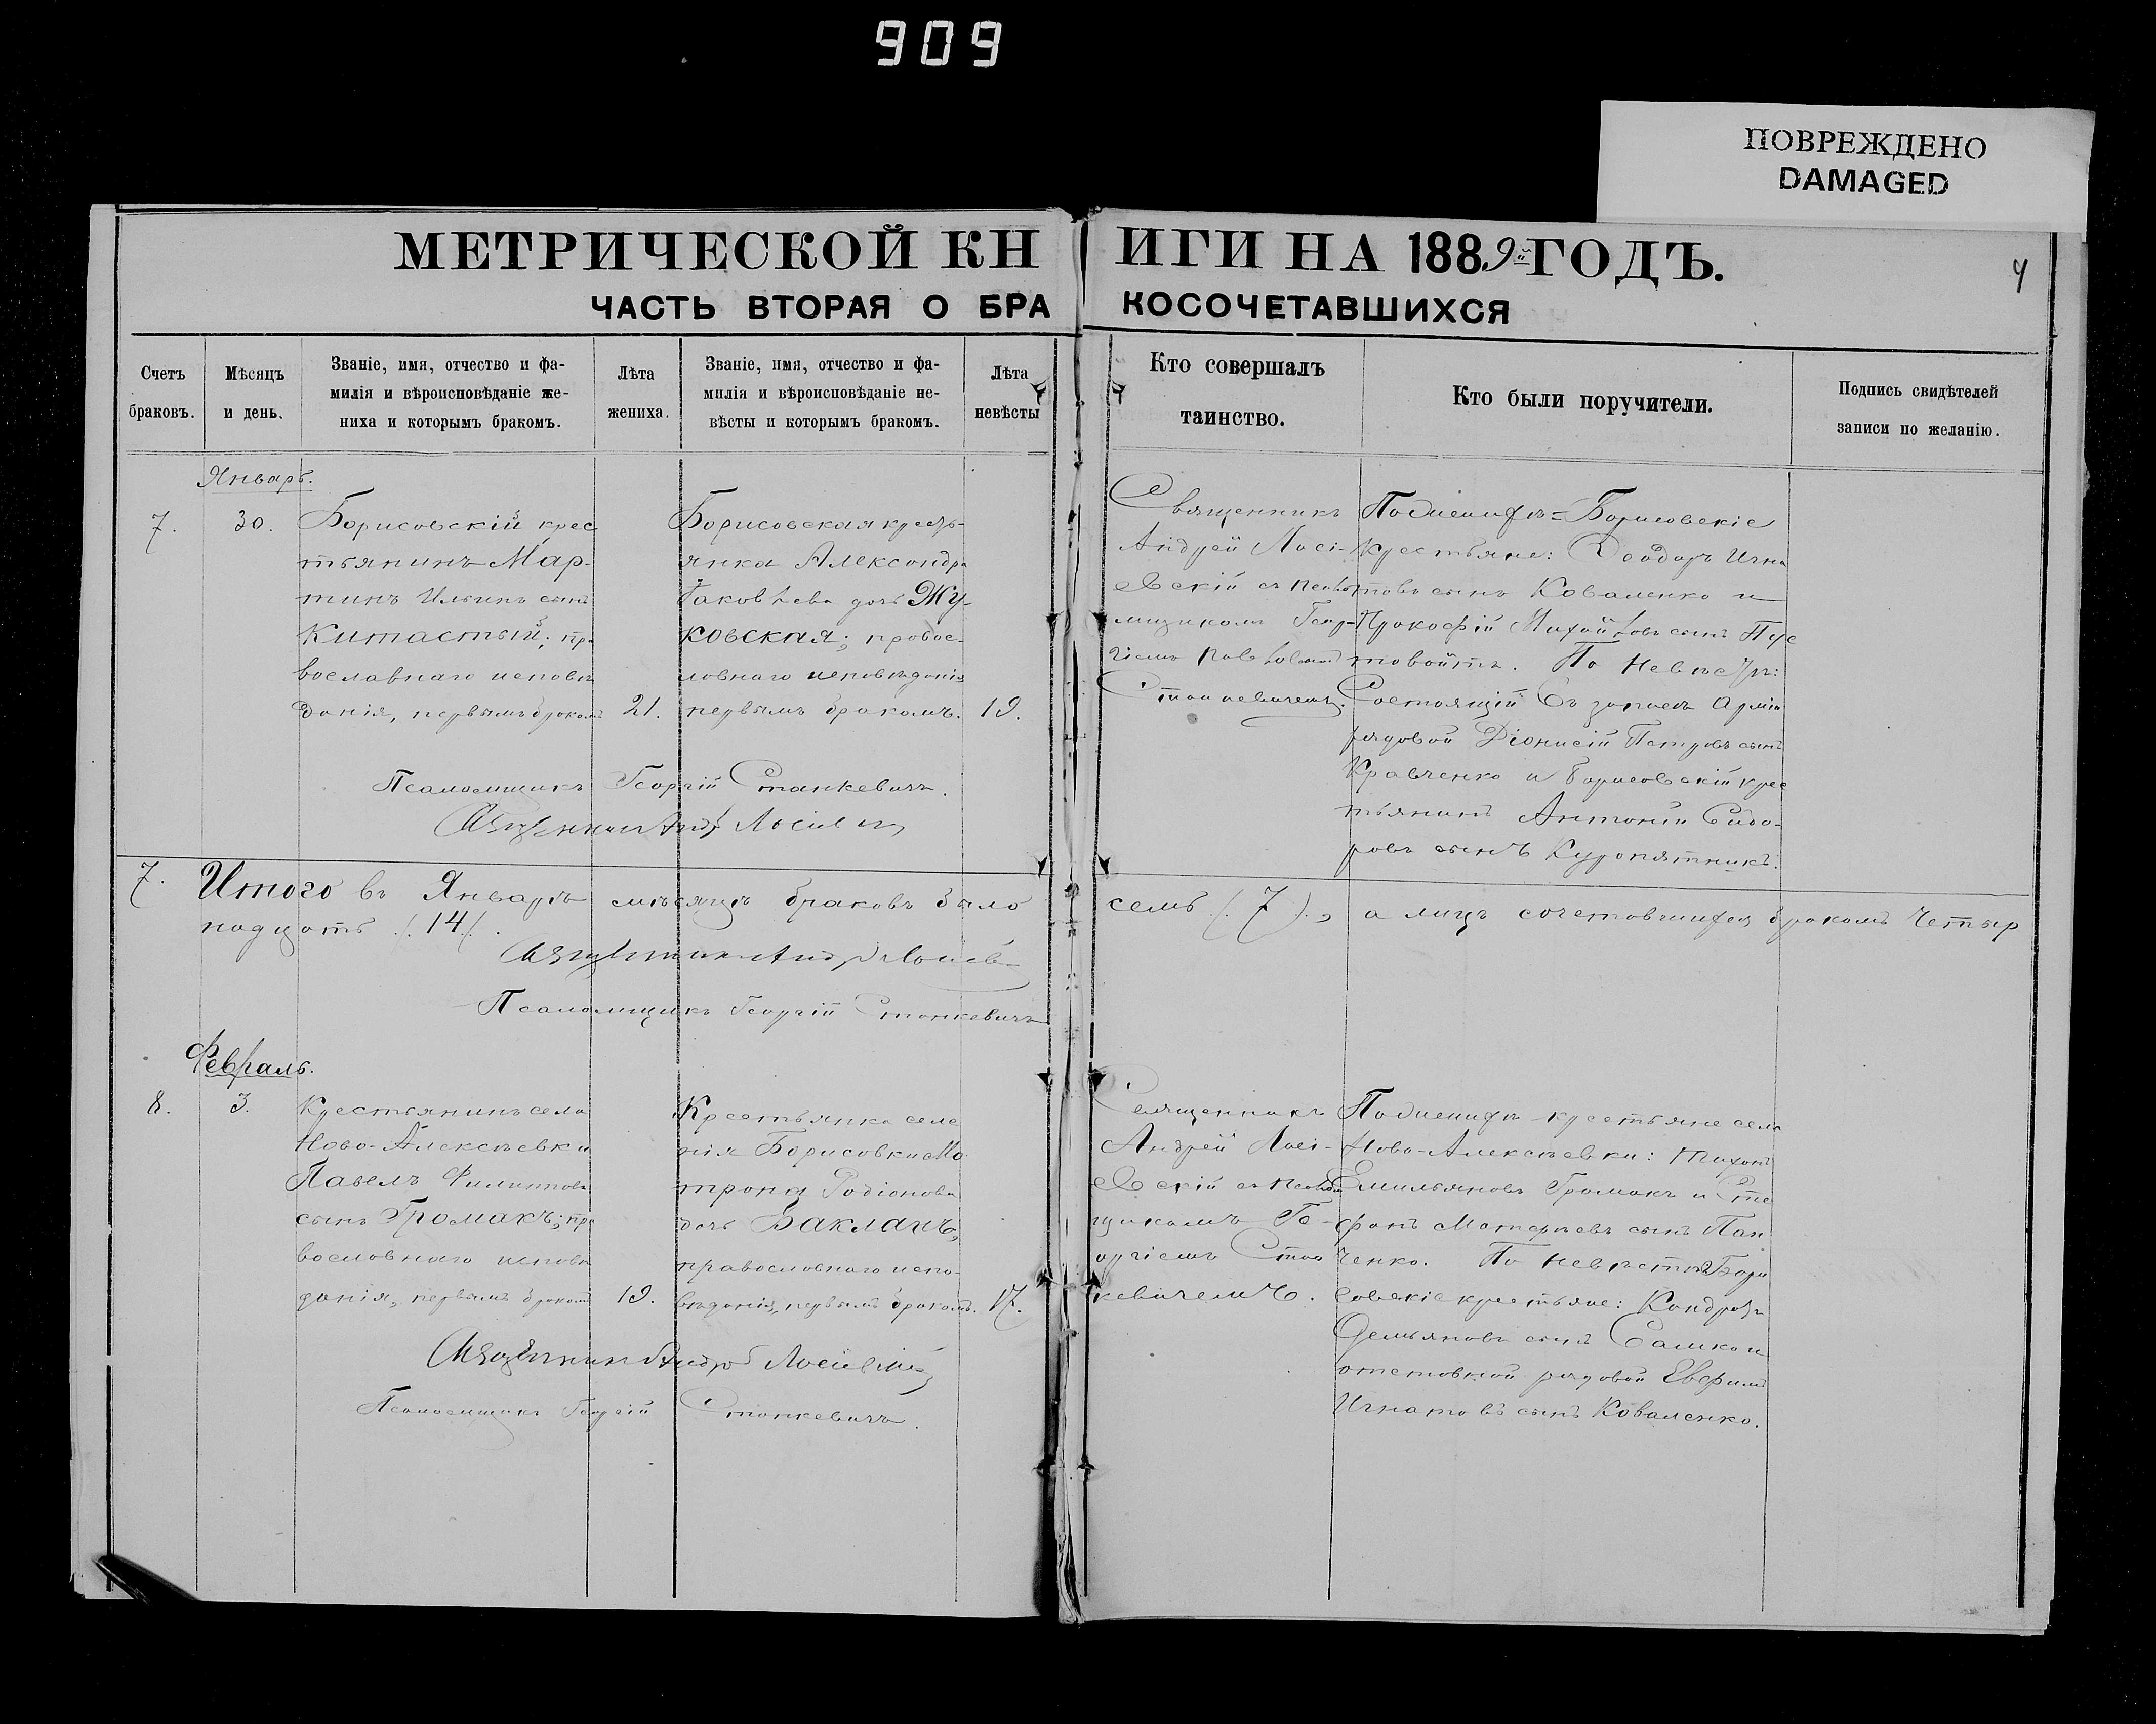 909
ПОВРЕЖДЕНО
DAMAGED
МЕТРИЧЕСКОЙ КНИГИ НА 1889й ГОДЪ.
4
ЧАСТЬ ВТОРАЯ О БРАКОСОЧЕТАВШИХСЯ
Счетъ
браковъ.
Мѣсяцъ
и день.
Званіе, имя, отчество и фа-
милія и вѣроисповѣданіе же-
ниха и которымъ бракомъ.
Лѣта
жениха.
Званіе, имя, отчество и фа-
милія и вѣроисповѣданіе не-
вѣсты и которымъ бракомъ.
Лѣта
невѣсты
Кто совершалъ
таинство.
Кто были поручители.
Подпись свидѣтелей
записи по желанію.
Январь.
7.
30.
Борисовскій крес
тьянинъ Мар-
тинъ Ильинъ сынъ
Китастый; пра
вославнаго исповѣ
данія, первымъ бракомъ
21.
Борисовская кресть-
янка Александра
Іаковлева дочь Жу-
ковская; правос-
лавнаго исповѣданія
первымъ бракомъ.
19.
Священникъ
Андрей Лосі-
евскій съ псало
мщикомъ Геор-
гіемъ Павловымъ
Станкевичемъ.
По женихѣ = Борисовскіе
крестьяне: Ѳеодоръ Игна
товъ сынъ Коваленко и
Прокофій Михайловъ сынъ Пус
товойтъ. По невѣстѣ:
Состоящій въ запасѣ арміи
рядовой Діонисій Петровъ сынъ
Кравченко и Борисовскій крес
тьянинъ Антоній Сидо-
ровъ сынъ Куропятникъ.
Псаломщикъ Георгій Станкевичъ.
Священникъ Андр Лосіев
7. Итого въ Январѣ мѣсяцѣ браковъ было семь (7), а лицъ сочетавшихся бракомъ четыр
надцать (14).
Священникъ Андр Лосіев
Псаломщикъ Георгій Станкевичъ
Февраль.
8.
3.
Крестьянинъ села
Ново-Алексѣевки
Павелъ Филипповъ
сынъ Громакъ; пра
вославнаго исповѣ
данія, первымъ бракомъ
19.
Крестьянка селе
нія Борисовки Ма
трона Родіонова
дочь Бакланъ,
православнаго испо-
вѣданія, первымъ бракомъ.
17.
Священникъ
Андрей Лосі-
евскій съ псалом
щикомъ Ге-
оргіемъ Стан
кевичемъ.
По женихѣ - крестьяне села
Ново-Алексѣевки: Тихонъ
Емильяновъ Громакъ и Сте
фанъ Матфѣевъ сынъ Пан
ченко. По невѣстѣ Бори
совскіе крестьяне: Кондратъ
Демьяновъ сынъ Сашко и
отставной рядовой Евфимъ
Игнатовъ сынъ Коваленко.
Священникъ Андрей Лосіевскій
Псаломщикъ Георгій Станкевичъ.